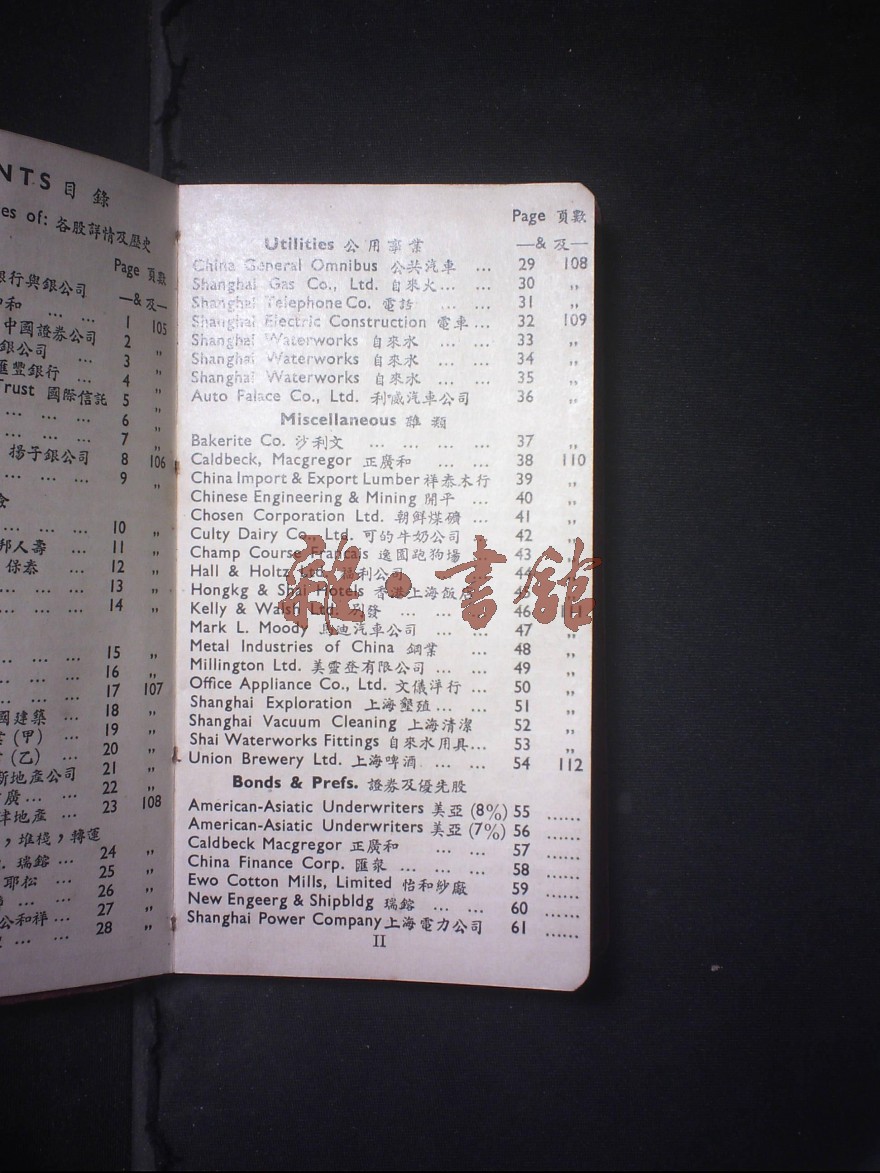 NTS 目 錄
es of: 各股詳情及歷史
Page 頁數
銀行與銀公司 —& 及—
和 … … 1 105
中國證券公司 2 ,,
銀公司 … 3 ,,
匯豐銀行 … 4 ,,
Trust 國際信託 5 ,,
… … … 6 ,,
… … … 7 ,,
揚子銀公司 8 106
… … … 9 ,,
… … … 10 ,,
邦人壽 … 11 ,,
保泰 … 12 ,,
… … … 13 ,,
… … … 14 ,,
… … … 15 ,,
… … … 16 ,,
… … … 17 107
國建築 … 18 ,,
(甲) … 19 ,,
(乙) … 20 ,,
新地產公司 21 ,,
廣… … 22 ,,
津地產 … 23 108
，堆棧，轉運
. 瑞鎔 … 24 ,,
耶松 … 25 ,,
… … 26 ,,
公和祥… 27 ,,
… … 28 ,,
Page 頁數
Utilities 公用事業 —& 及—
China General Omnibus 公共汽車 … 29 108
Shanghai Gas Co., Ltd. 自來火… … 30 ,,
Shanghai Telephone Co. 電話 … … 31 ,,
Shanghai Electric Construction 電車… 32 109
Shanghai Waterworks 自來水 … … 33 ,,
Shanghai Waterworks 自來水 … … 34 ,,
Shanghai Waterworks 自來水 … … 35 ,,
Auto Palace Co., Ltd. 利威汽車公司 36 ,,
Miscellaneous 雜類
Bakerite Co. 沙利文 … … … … 37 ,,
Caldbeck, Macgregor 正廣和 … … 38 110
China Import & Export Lumber 祥泰木行 39 ,,
Chinese Engineering & Mining 開平 … 40 ,,
Chosen Corporation Ltd. 朝鮮煤礦 … 41 ,,
Culty Dairy Co., Ltd. 可的牛奶公司 42 ,,
Champ Course Francais 逸園跑狗場 … 43 ,,
Hall & Holtz Ltd. 福利公司 … … 44 ,,
Hongkg & Shai Hotels 香港上海飯店 45 ,,
Kelly & Walsh Ltd. 別發 … … … 46 111
Mark L. Moody 馬迪汽車公司 … … 47 ,,
Metal Industries of China 鋼業 … 48 ,,
Millington Ltd. 美靈登有限公司 … … 49 ,,
Office Appliance Co., Ltd. 文儀洋行 … 50 ,,
Shanghai Exploration 上海墾殖… … 51 ,,
Shanghai Vacuum Cleaning 上海清潔 52 ,,
Shai Waterworks Fittings 自來水用具… 53 ,,
Union Brewery Ltd. 上海啤酒 … … 54 112
Bonds & Prefs. 證券及優先股
American-Asiatic Underwriters 美亞 (8%) 55 ……
American-Asiatic Underwriters 美亞 (7%) 56 ……
Caldbeck Macgregor 正廣和 … … 57 ……
China Finance Corp. 匯眾 … … … 58 ……
Ewo Cotton Mills, Limited 怡和紗廠 59 ……
New Engeerg & Shipbldg 瑞鎔 … … 60 ……
Shanghai Power Company 上海電力公司 61 ……
II
雜·書館